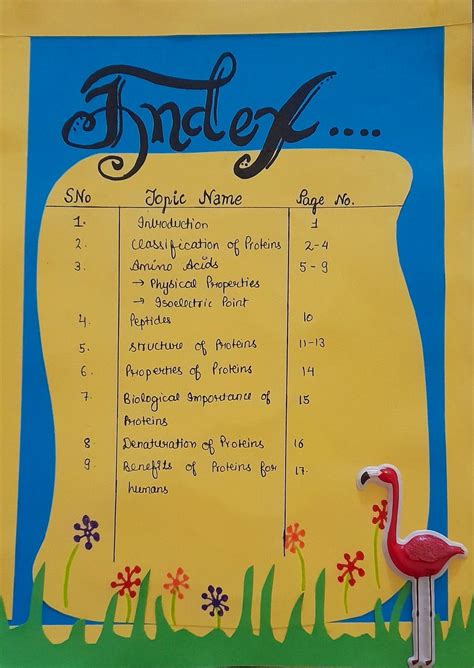 Index....
SNo Topic Name Page No.
1. Introduction 1
2. Classification of Proteins 2-4
3. Amino Acids 5-9
→ Physical Properties
→ Isoelectric Point
4. Peptides 10
5. Structure of Proteins 11-13
6. Properties of Proteins 14
7. Biological Importance of 15
Proteins
8 Denaturation of Proteins 16
9. Benefits of Proteins for 17.
humans